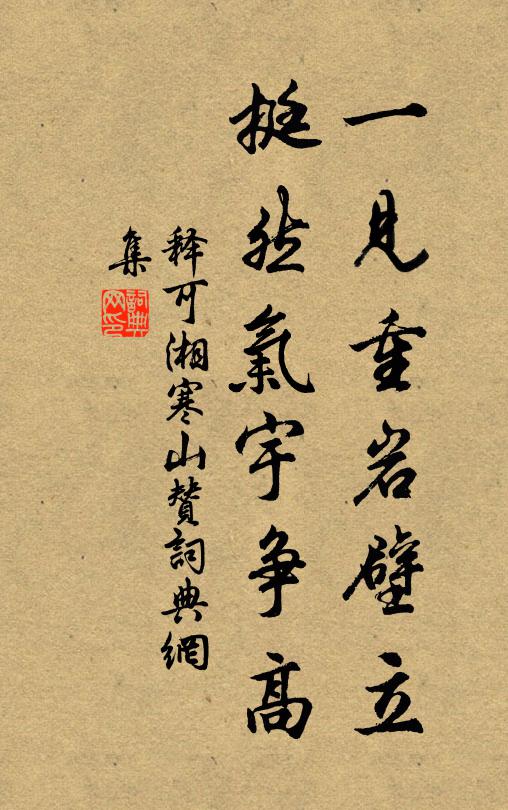 一見重岩壁立
挺然氣宇争高
释可湘寒山贊詞典網
集
詞典
网印